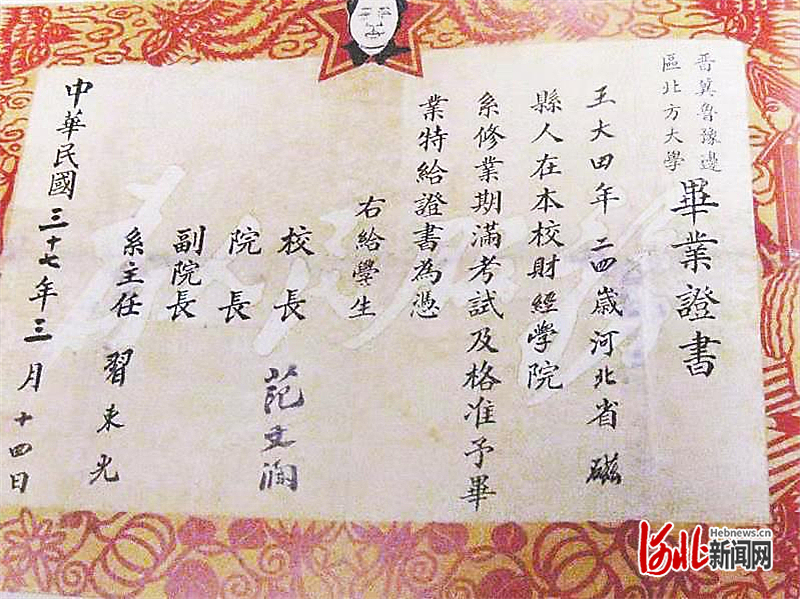 晋冀魯豫邊
區北方大學
畢業證書
王大田年二四歲河北省磁
縣人在本校財經學院
系修業期滿考試及格准予畢
業特給證書為憑
右給學生
校長 范文瀾
院長
副院長
系主任 習東光
中華民國三十七年三月十四日
河北新闻网
Hebnews.cn